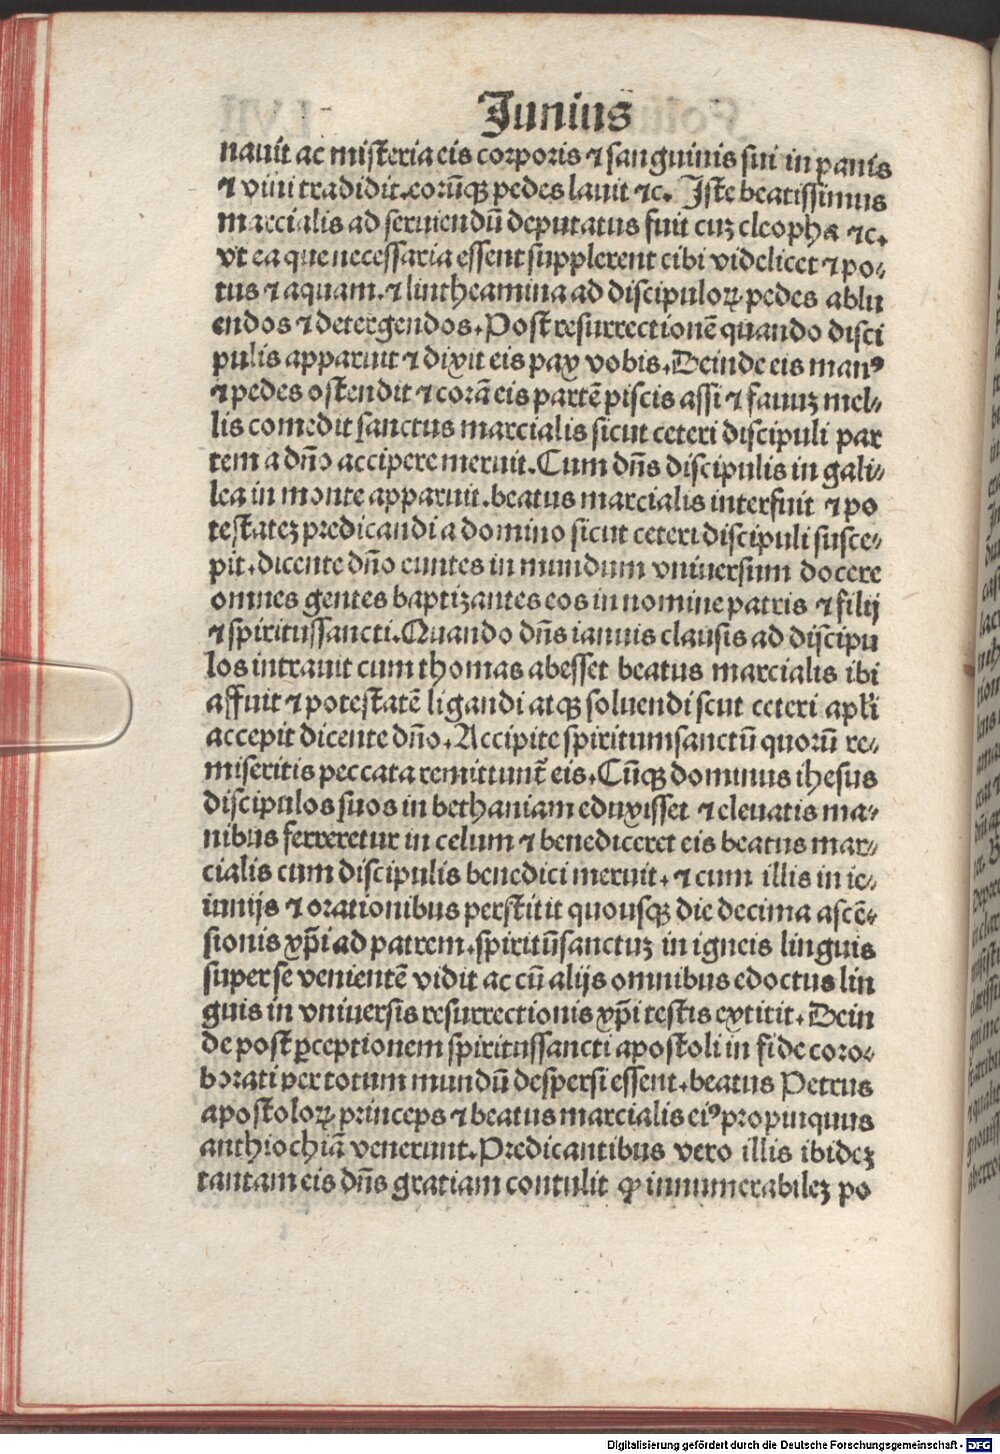 Junius
nauit ac misteria eis corporis ⁊ sanguinis sui in panis
⁊ vini tradidit.eorūqꝫ pedes lauit ⁊c. Iste beatissimus
marcialis ad seruiendū deputatus fuit cuꝫ cleopha ⁊c.
vt ea que necessaria essent supplerent cibi videlicet ⁊ po⸗
tus ⁊ aquam.⁊ lintheamina ad discipuloꝝ pedes ablu
endos ⁊ detergendos.Post resurrectionē quando disci
pulis apparuit ⁊ dixit eis pax vobis.Deinde eis manꝰ
⁊ pedes ostendit ⁊ corā eis partē piscis assi ⁊ fauuꝫ mel⸗
lis comedit sanctus marcialis sicut ceteri discipuli par
tem a dño accipere meruit.Cum dñs discipulis in gali⸗
lea in monte apparuit.beatus marcialis interfuit ⁊ po
testateꝫ predicandi a domino sicut ceteri discipuli susce⸗
pit.dicente dño euntes in mundum vniuersum docere
omnes gentes baptizantes eos in nomine patris ⁊ filij
⁊ spiritussancti.Quando dñs ianuis clausis ad discipu
los intrauit cum thomas abesset beatus marcialis ibi
affuit ⁊ potestatē ligandi atqꝫ soluendi scut ceteri apłi
accepit dicente dño.Accipite spiritumsanctū quorū re⸗
miseritis peccata remittunt̄ eis.Cūqꝫ dominus ihesus
discipulos suos in bethaniam eduxisset ⁊ eleuatis ma⸗
nibus ferreretur in celum ⁊ benediceret eis beatus mar⸗
cialis cum discipulis benedici meruit.⁊ cum illis in ie⸗
iunijs ⁊ orationibus perstitit quousqꝫ die decima ascē⸗
sionis xp̄i ad patrem.spiritūsanctuꝫ in igneis linguis
super se venientē vidit ac cū alijs omnibus edoctus lin
guis in vniuersis resurrectionis xp̄i testis extitit.Dein
de post ꝑceptionem spiritussancti apostoli in fide coro⸗
borati per totum mundū despersi essent.beatus Petrus
apostoloꝝ princeps ⁊ beatus marcialis eiꝰ propinquus
anthiochiā venerunt.Predicantibus vero illis ibideꝫ
tantam eis dñs gratiam contulit ꝙ innumerabileꝫ po
Digitalisierung gefördert durch die Deutsche Forschungsgemeinschaft - DFG